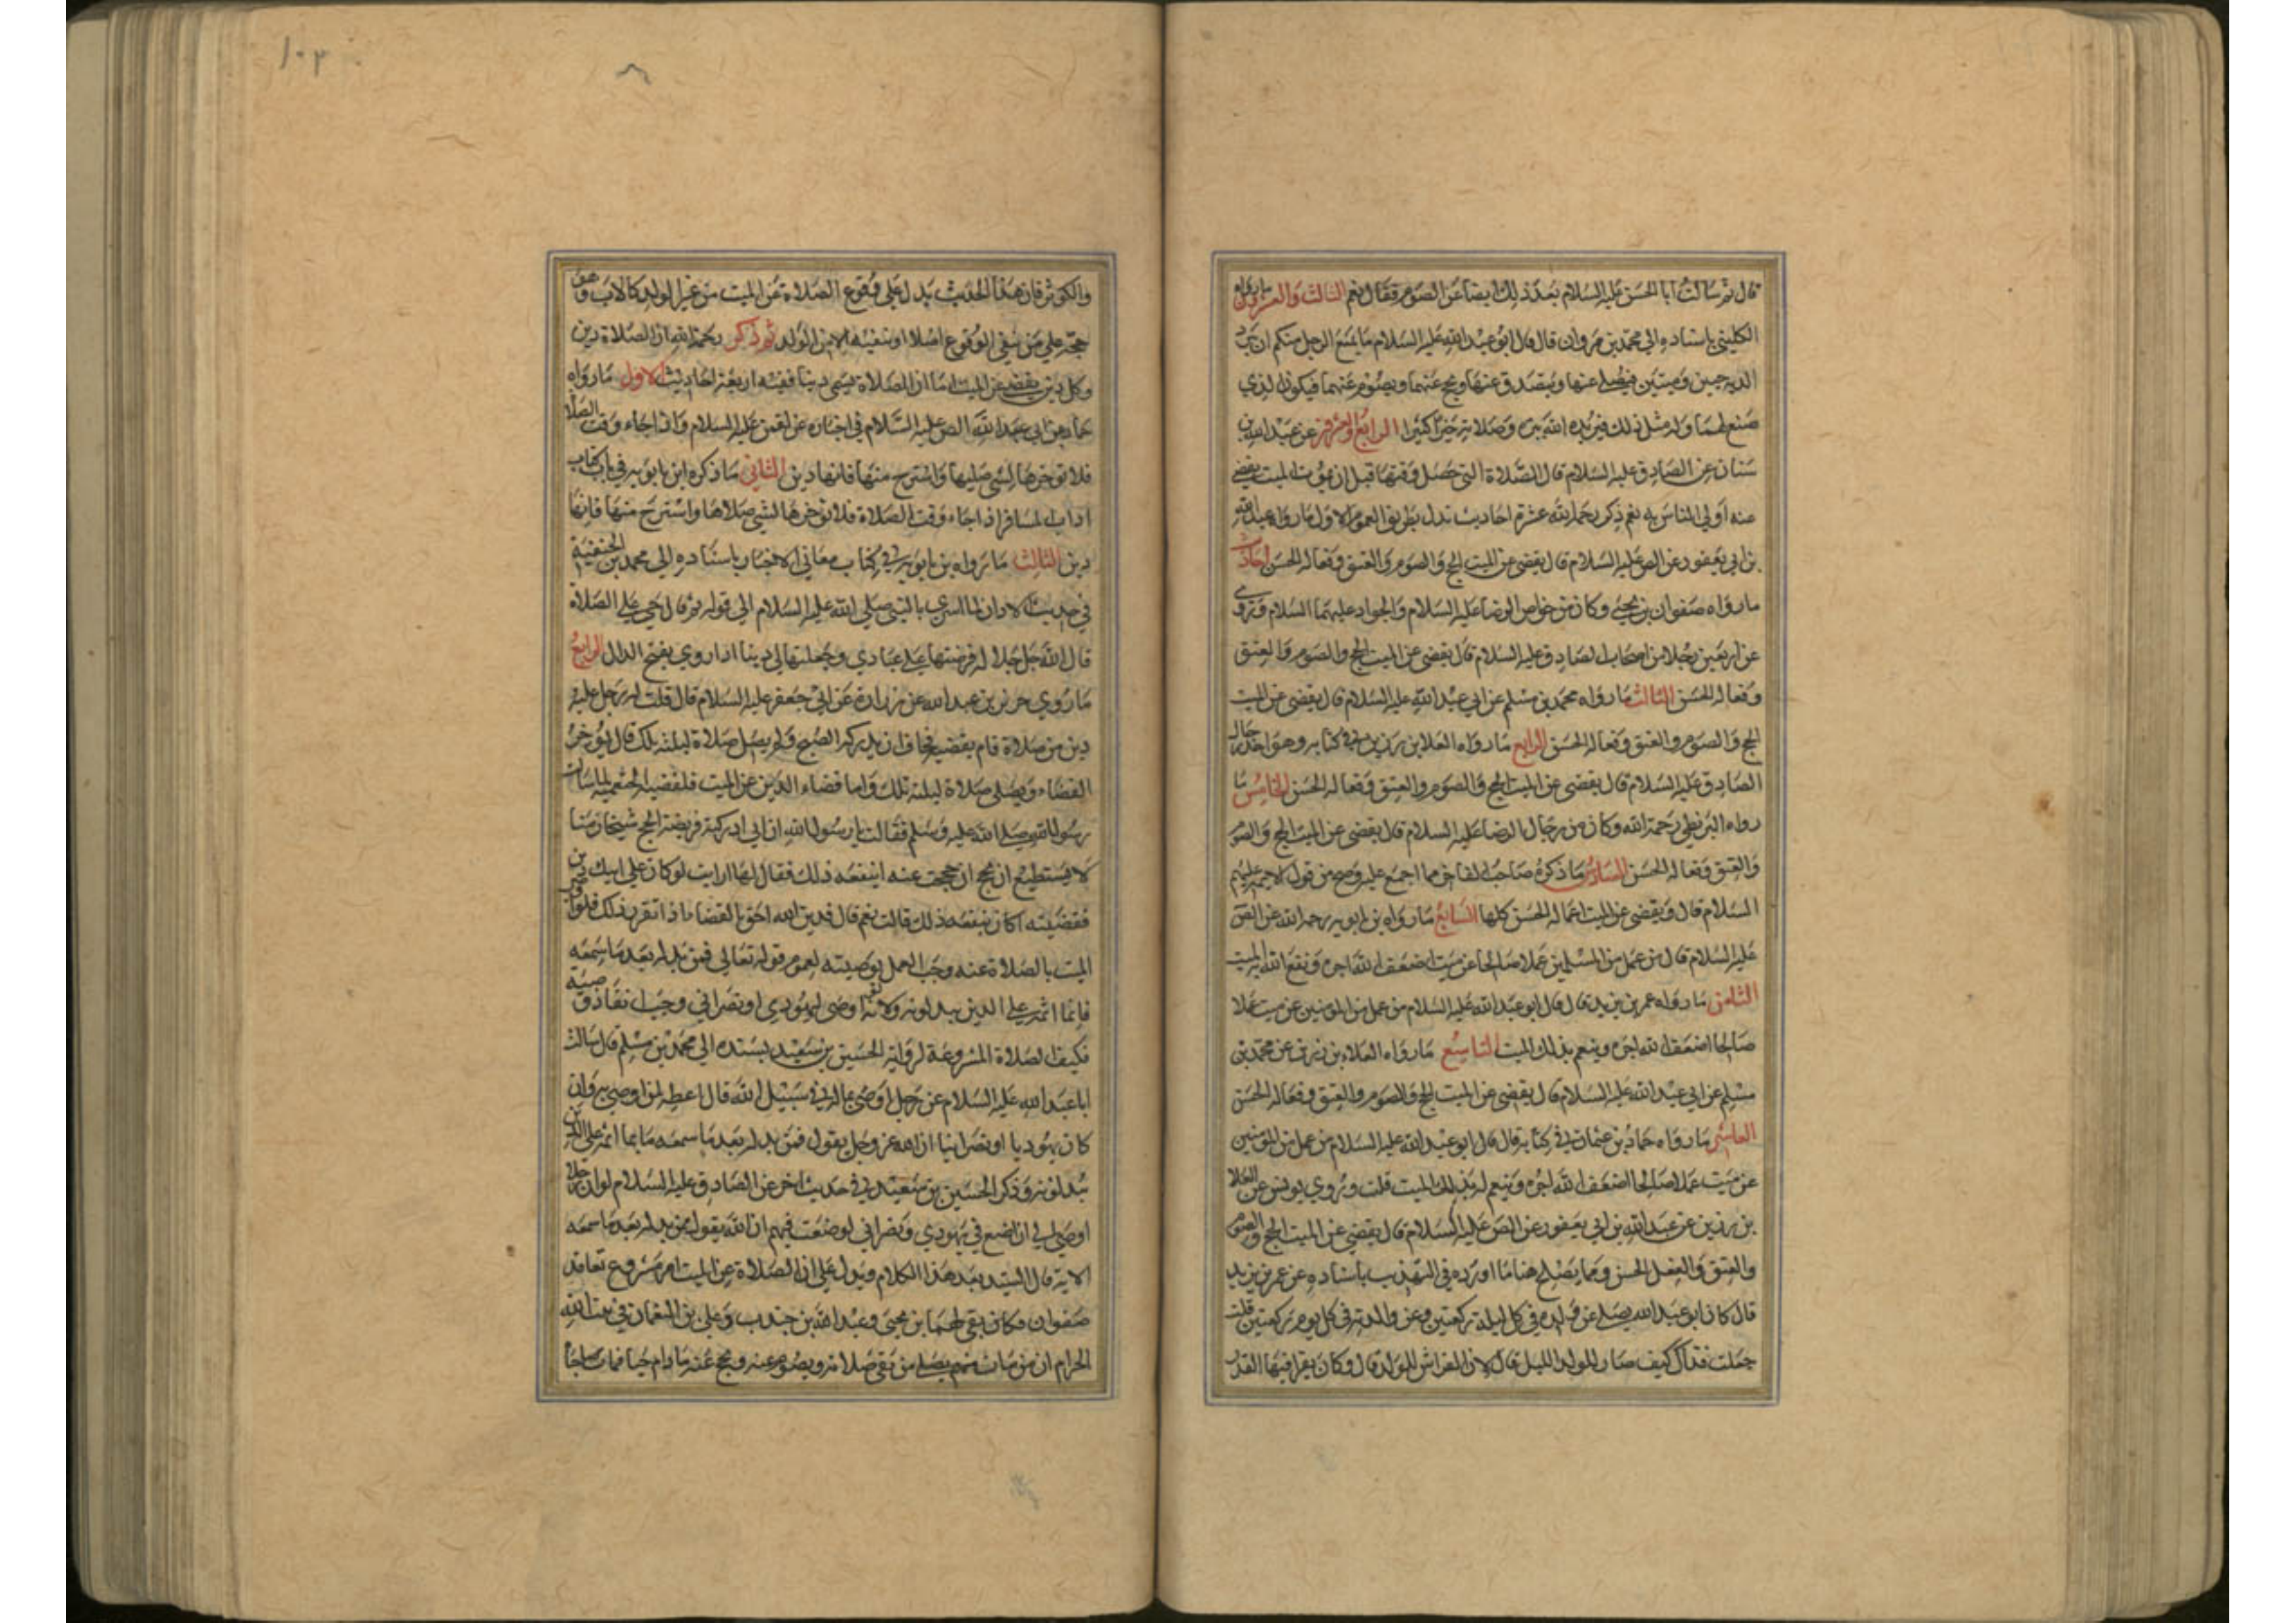 قال ثم سألت أبا الحسن عليه السلام بعد ذلك أيضا عن الصوم فقال نعم الثالث والعشرون ما رواه
الكليني باسناده الى محمد بن مروان قال قال ابو عبد الله عليه السلام ما يمنع الرجل منكم ان يبر
والديه حيين وميتين فيصلي عنهما ويتصدق عنهما ويحج عنهما ويصوم عنهما فيكون الذي
صنع لهما وله مثل ذلك فيزيده الله ببره وصلاته خيرا كثيرا الرابع والعشرون عن عبد الله بن
سنان عن الصادق عليه السلام قال الصلاة التي حصل وقتها قبل ان يموت الميت يقضي
عنه اولي الناس به ثم ذكر رحمه الله عشرة احاديث تدل بطريق العموم الاول ما رواه عبد الله
بن ابي يعفور عن الص عليه السلام قال يقضى عن الميت الحج والصوم والعتق وفعاله الحسن
ما رواه صفوان بن يحيى وكان من خواص الرضا عليه السلام والجواد عليهما السلام وروى
عن اربعين رجلا من اصحاب الصادق عليه السلام قال يقضى عن الميت الحج والصوم والعتق
وفعاله الحسن الثالث ما رواه محمد بن مسلم عن ابي عبد الله عليه السلام قال يقضى عن الميت
الحج والصوم والعتق وفعاله الحسن الرابع ما رواه العلا بن رزين في كتابه وهو احد رجال
الصادق عليه السلام قال يقضى عن الميت الحج والصوم والعتق وفعاله الحسن الخامس ما
رواه البزنطي رحمه الله وكان من رجال الرضا عليه السلام قال يقضى عن الميت الحج والصوم
والعتق وفعاله الحسن السادس ما ذكره صاحب الفاخر مما اجمع عليه وصح من قول الائمة عليهم
السلام قال ويقضى عن الميت اعماله الحسن كلها السابع ما رواه بن بابويه رحمه الله عن الص
عليه السلام قال من عمل من المسلمين عملا صالحا عن ميت اضعف الله اجره ونفع الله به الميت
الثامن ما رواه عمر بن يزيد قال قال ابو عبد الله عليه السلام من عمل من المومنين عن ميت عملا
صالحا اضعف الله اجره وينعم بذلك الميت التاسع ما رواه العلاء بن رزين عن محمد بن
مسلم عن ابي عبد الله عليه السلام قال يقضى عن الميت الحج والصوم والعتق وفعاله الحسن
العاشر ما رواه حماد بن عثمان في كتابه قال قال ابو عبد الله عليه السلام من عمل من المومنين
عن ميت عملا صالحا اضعف الله اجره وينعم بذلك الميت قلت وروي يونس عن العلا
بن رزين عن عبد الله بن ابي يعفور عن الص عليه السلام قال يقضى عن الميت الحج والصوم
والعتق والفعل الحسن ومما يصلح هنا ما اورده في التهذيب باسناده عن عمر بن يزيد
قال كان ابو عبد الله يصلي عن ولده في كل ليلة ركعتين وعن والديه في كل يوم ركعتين قلت
جعلت فداك كيف صار للولد الليل قال لان الفراش للولد قال وكان يقرا فيها القدر
والكوثر فان هذا الحديث يدل على وقوع الصلاة عن الميت من غير الولد كالاب وهو
حجة على من ينفي الوقوع اصلا او ينفيه الا من الولد ثم ذكر رحمه الله ان الصلاة دين
وكل دين يقضى عن الميت اما ان الصلاة تسمى دينا ففيه اربعة احاديث الاول ما رواه
حماد عن ابي عبد الله الص عليه السلام في اخباره عن لقمن عليه السلام واذا جاء وقت الصلا
فلا توخرها لشي صليها واسترح منها فانها دين الثاني ما ذكره ابن بابويه في باب
اداب المسافر اذا جاء وقت الصلاة فلا توخرها لشي صلاها واسترح منها فانها
دين الثالث ما رواه بن بابويه في كتاب معاني الاخبار باسناده الى محمد بن الحنفية
في حديث الاذان لما اسري بالنبي صلى الله عليه السلام الى قوله ثم قال حي على الصلاة
قال الله جل جلاله فرضتها على عبادي وجعلتها لي دينا اذا روي بفتح الدال الرابع
ما روي حريز بن عبد الله عن زرارة عن ابي جعفر عليه السلام قال قلت له رجل عليه
دين من صلاة قام يقضيه فخاف ان يدركه الصبح ولم يصل صلاة ليلته تلك قال يوخر
القضاء ويصلى صلاة ليلته تلك واما قضاء الدين عن الميت فلقضية الخثعمية لما سالت
رسول الله صلى الله عليه وسلم فقالت يا رسول الله ان ابي ادركته فريضة الحج شيخا زمنا
لا يستطيع ان يحج ان حججت عنه اينفعه ذلك فقال لها ارايت لو كان على ابيك دين
فقضيته اكان ينفعه ذلك قالت نعم قال فدين الله احق بالقضا اذا تقرر ذلك فلو اوصى
الميت بالصلاة عنه وجب العمل بوصيته لعموم قوله تعالى فمن بدله بعد ما سمعه
فانما اثمه على الذين يبدلونه ولانه لو اوصى ليهودي او نصراني وجب انفاذ وصيته
فكيف الصلاة المشروعة لرواية الحسين بن سعيد بسنده الى محمد بن مسلم قال سالت
ابا عبد الله عليه السلام عن رجل اوصى بماله في سبيل الله قال اعطه لمن اوصى به وان
كان يهوديا او نصرانيا ان الله عز وجل يقول فمن بدله بعد ما سمعه فانما اثمه على الذين
يبدلونه وذكر الحسين بن سعيد في حديث اخر عن الصادق عليه السلام لو ان رجلا
اوصى الي ان اضع في يهودي ونصراني لوضعت فيهم ان الله يقول فمن بدله بعد ما سمعه
الاية قال السيد بعد هذا الكلام ويدل على ان الصلاة عن الميت امر مشروع تعاقد
صفوان بن يحيى وعبد الله بن جندب وعلي بن النعمان في بيت الله
الحرام ان من مات منهم يصلي من بقى صلاته ويصوم عنه ويحج عنه ما دام حيا فمات صاحبا